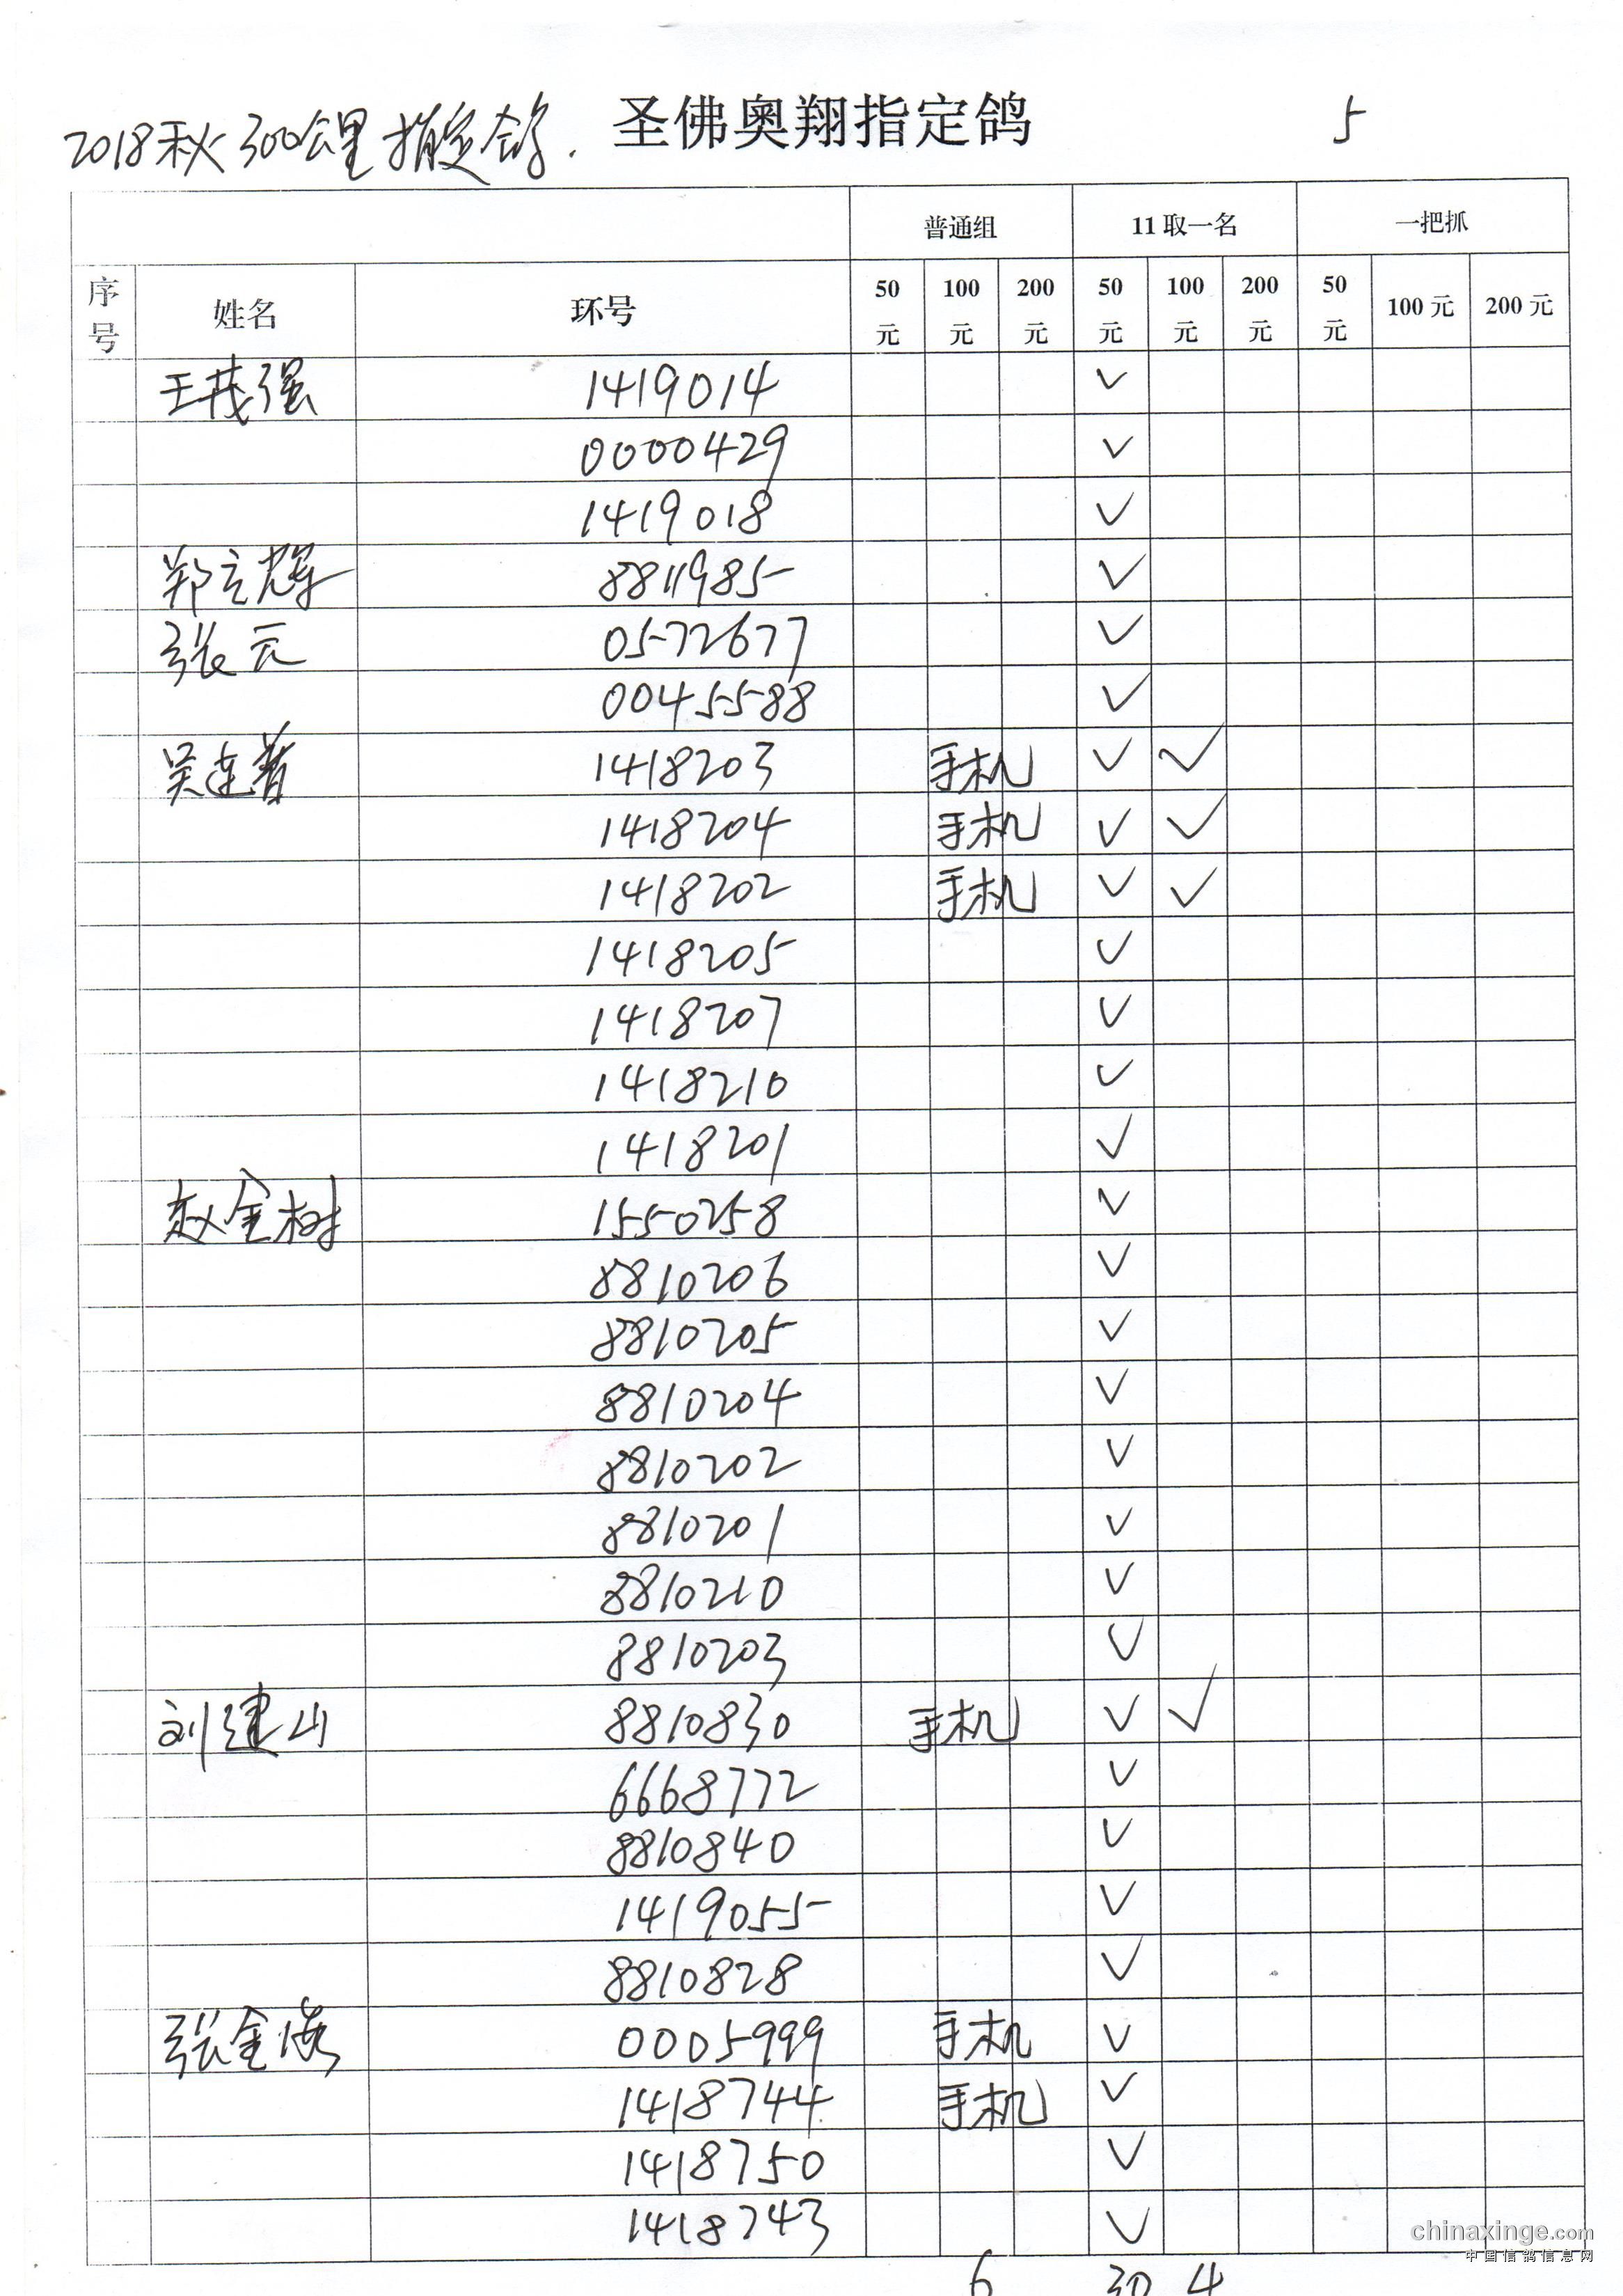 2018秋300公里指定鸽. 圣佛奥翔指定鸽 5
普通组 11取一名 一把抓
序号 姓名 环号 50元 100元 200元 50元 100元 200元 50元 100元 200元
王茂强 1419014 ✓
0000429 ✓
1419018 ✓
郑立辉 8811985 ✓
张元 0572677 ✓
0045588 ✓
吴连普 1418203 手机 ✓ ✓
1418204 手机 ✓ ✓
1418202 手机 ✓ ✓
1418205 ✓
1418207 ✓
1418210 ✓
1418201 ✓
赵金树 1550258 ✓
8810206 ✓
8810205 ✓
8810204 ✓
8810202 ✓
8810201 ✓
8810210 ✓
8810203 ✓
刘建山 8810830 手机 ✓ ✓
6668772 ✓
8810840 ✓
1419055 ✓
8810828 ✓
张金海 0005999 手机 ✓
1418744 手机 ✓
1418750 ✓
1418743 ✓
6 30 4
chinaxinge.com
中国信鸽信息网